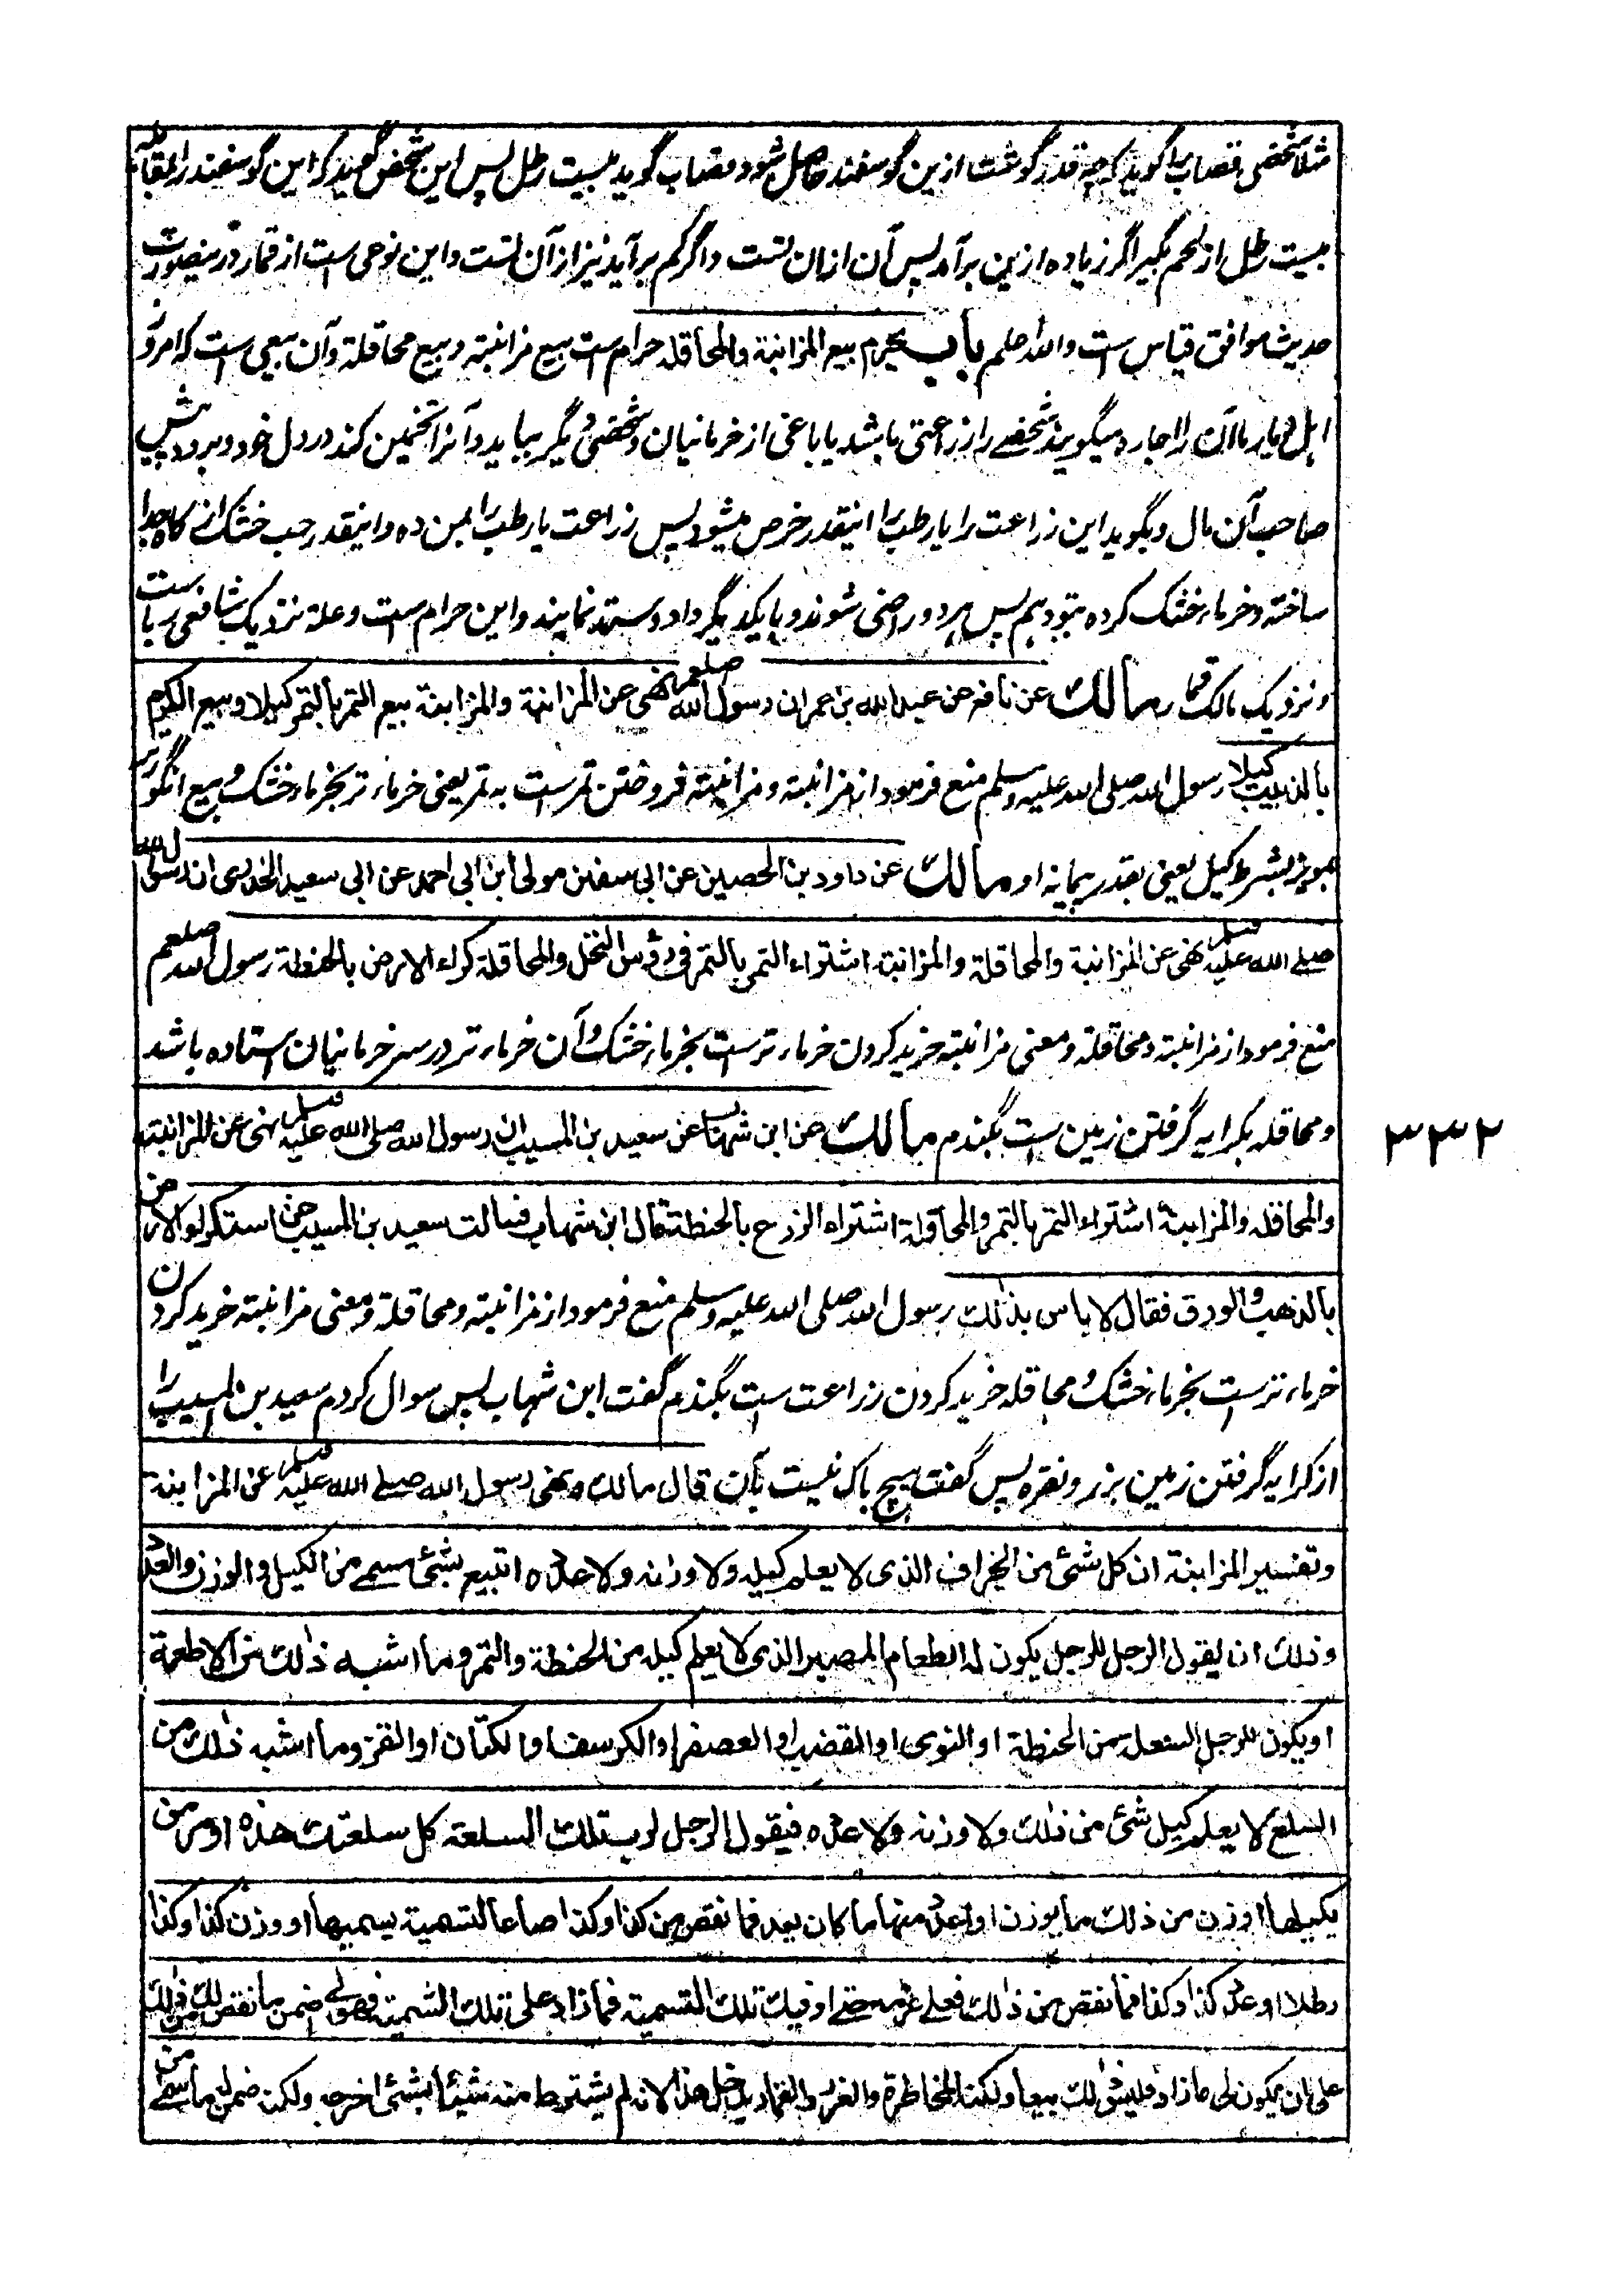 مثلا شخصی قصاب را گوید که چه قدر گوشت ازین گوسفند حاصل شود و قصاب گوید بیست رطل پس این شخص گوید که این گوسفند را بمقابله
بیست رطل از لحم بگیر اگر زیاده ازین برآمد پس آن ازان تست و اگر کم برآید نیز از آن تست و این نوعی ست از قمار و درینصورت
حدیث موافق قیاس ست والله اعلم باب یحرم بیع المزابنة والمحاقله حرام ست بیع مزابنته و بیع محاقلة و آن بیعی ست که امروز
اهل دیار ما آن را اجاره میگویند شخصے را زراعتی باشد یا باغی از خرمانیان و شخصی دیگر بیاید و آنرا تخمین کند در دل خود و برود پیش
صاحب آن مال و بگوید این زراعت را یا رطب را اینقدر خرص میشود پس زراعت یا رطب را بمن ده و اینقدر حب خشک از کاه جدا
ساخته و خرماء خشک کرده بتو دهم پس هر دو راضی شوند و با یکدیگر داد و ستد نمایند و این حرام ست و علة نزدیک شافعی ربا ست
و نزدیک مالک قمار مالك عن نافع عن عبدالله بن عمر ان رسول الله صلعم نهی عن المزابنة والمزابنة بیع التمر بالتمر کیلا و بیع الکرم
بالزبیب کیلا رسول الله صلی الله علیه وسلم منع فرمود از مزابنته و مزابنته فروختن ثمرست به تمر یعنی خرماء تر بخرماء خشک و بیع انگور تر
بمویز بشرط کیل یعنی بقدر پیمانه او مالك عن داود بن الحصین عن ابی سفین مولی ابن ابی احمد عن ابی سعید الخدری ان رسول الله
صلے الله علیه وسلم نهی عن المزابنة والمحاقلة والمزابنة اشتراء التمر بالتمر فی رؤس النخل والمحاقلة کراء الارض بالحنطة رسول الله صلعم
منع فرمود از مزابنته و محاقلة و معنی مزابنته خرید کردن خرماء ترست بخرماء خشک و آن خرماء تر در سر خرمانیان استاده باشد
و محاقله بکرایه گرفتن زمین ست بگندم مالك عن ابن شهاب عن سعید بن المسیب ان رسول الله صلی الله علیه وسلم نهی عن المزابنته
والمحاقله والمزابنة اشتراء التمر بالتمر والمحاقلة اشتراء الزرع بالحنطة قال ابن شهاب فسالت سعید بن المسیب عن استکراء الارض
بالذهب والورق فقال لا باس بذلك رسول الله صلی الله علیه وسلم منع فرمود از مزابنته و محاقلة و معنی مزابنته خرید کردن
خرماء ترست بخرماء خشک و محاقله خرید کردن زراعت ست بگندم گفت ابن شهاب پس سوال کردم سعید بن المسیب را
از کرایه گرفتن زمین بزر و نقره پس گفت هیچ باک نیست بآن قال مالك نهی رسول الله صلے الله علیه وسلم عن المزابنة
وتفسیر المزابنة ان کل شئ من الجزاف الذی لا یعلم کیله ولا وزنه ولا عدده ابتیع بشئ مسمے من الکیل والوزن والعدد
وذلك ان یقول الرجل للرجل یکون له الطعام المصبر الذی لا یعلم کیله من الحنطة والتمر وما اشبه ذلك من الاطعمة
او یکون للرجل السلعة من الحنطة او النوی او القضب او العصفر او الکرسف او الکتان او القز وما اشبه ذلك من
السلع لا یعلم کیل شئ من ذلك ولا وزنه ولا عدده فیقول الرجل لرب تلك السلعة کل سلعتك هذه او مر من
یکیلها او زن من ذلك ما یوزن او عد منها ما کان یعد فما نقص من کذا وکذا صاعا لتسمیة یسمیها او وزن کذا وکذا
رطلا او عدد کذا وکذا فما نقص من ذلك فعلے غرمه حتے اوفیك تلك التسمیة فما زاد علی تلك التسمیة فهو لے اضمن ما نقص من ذلك
علی ان یکون لی ما زاد فلیس ذلك بیعا ولکنه المخاطرة والغرر والقمار یدخل هذا لانه لم یشتر منه شیئا بشئ اخرجه ولکنه ضمن له ما سمے من
۳۳۲